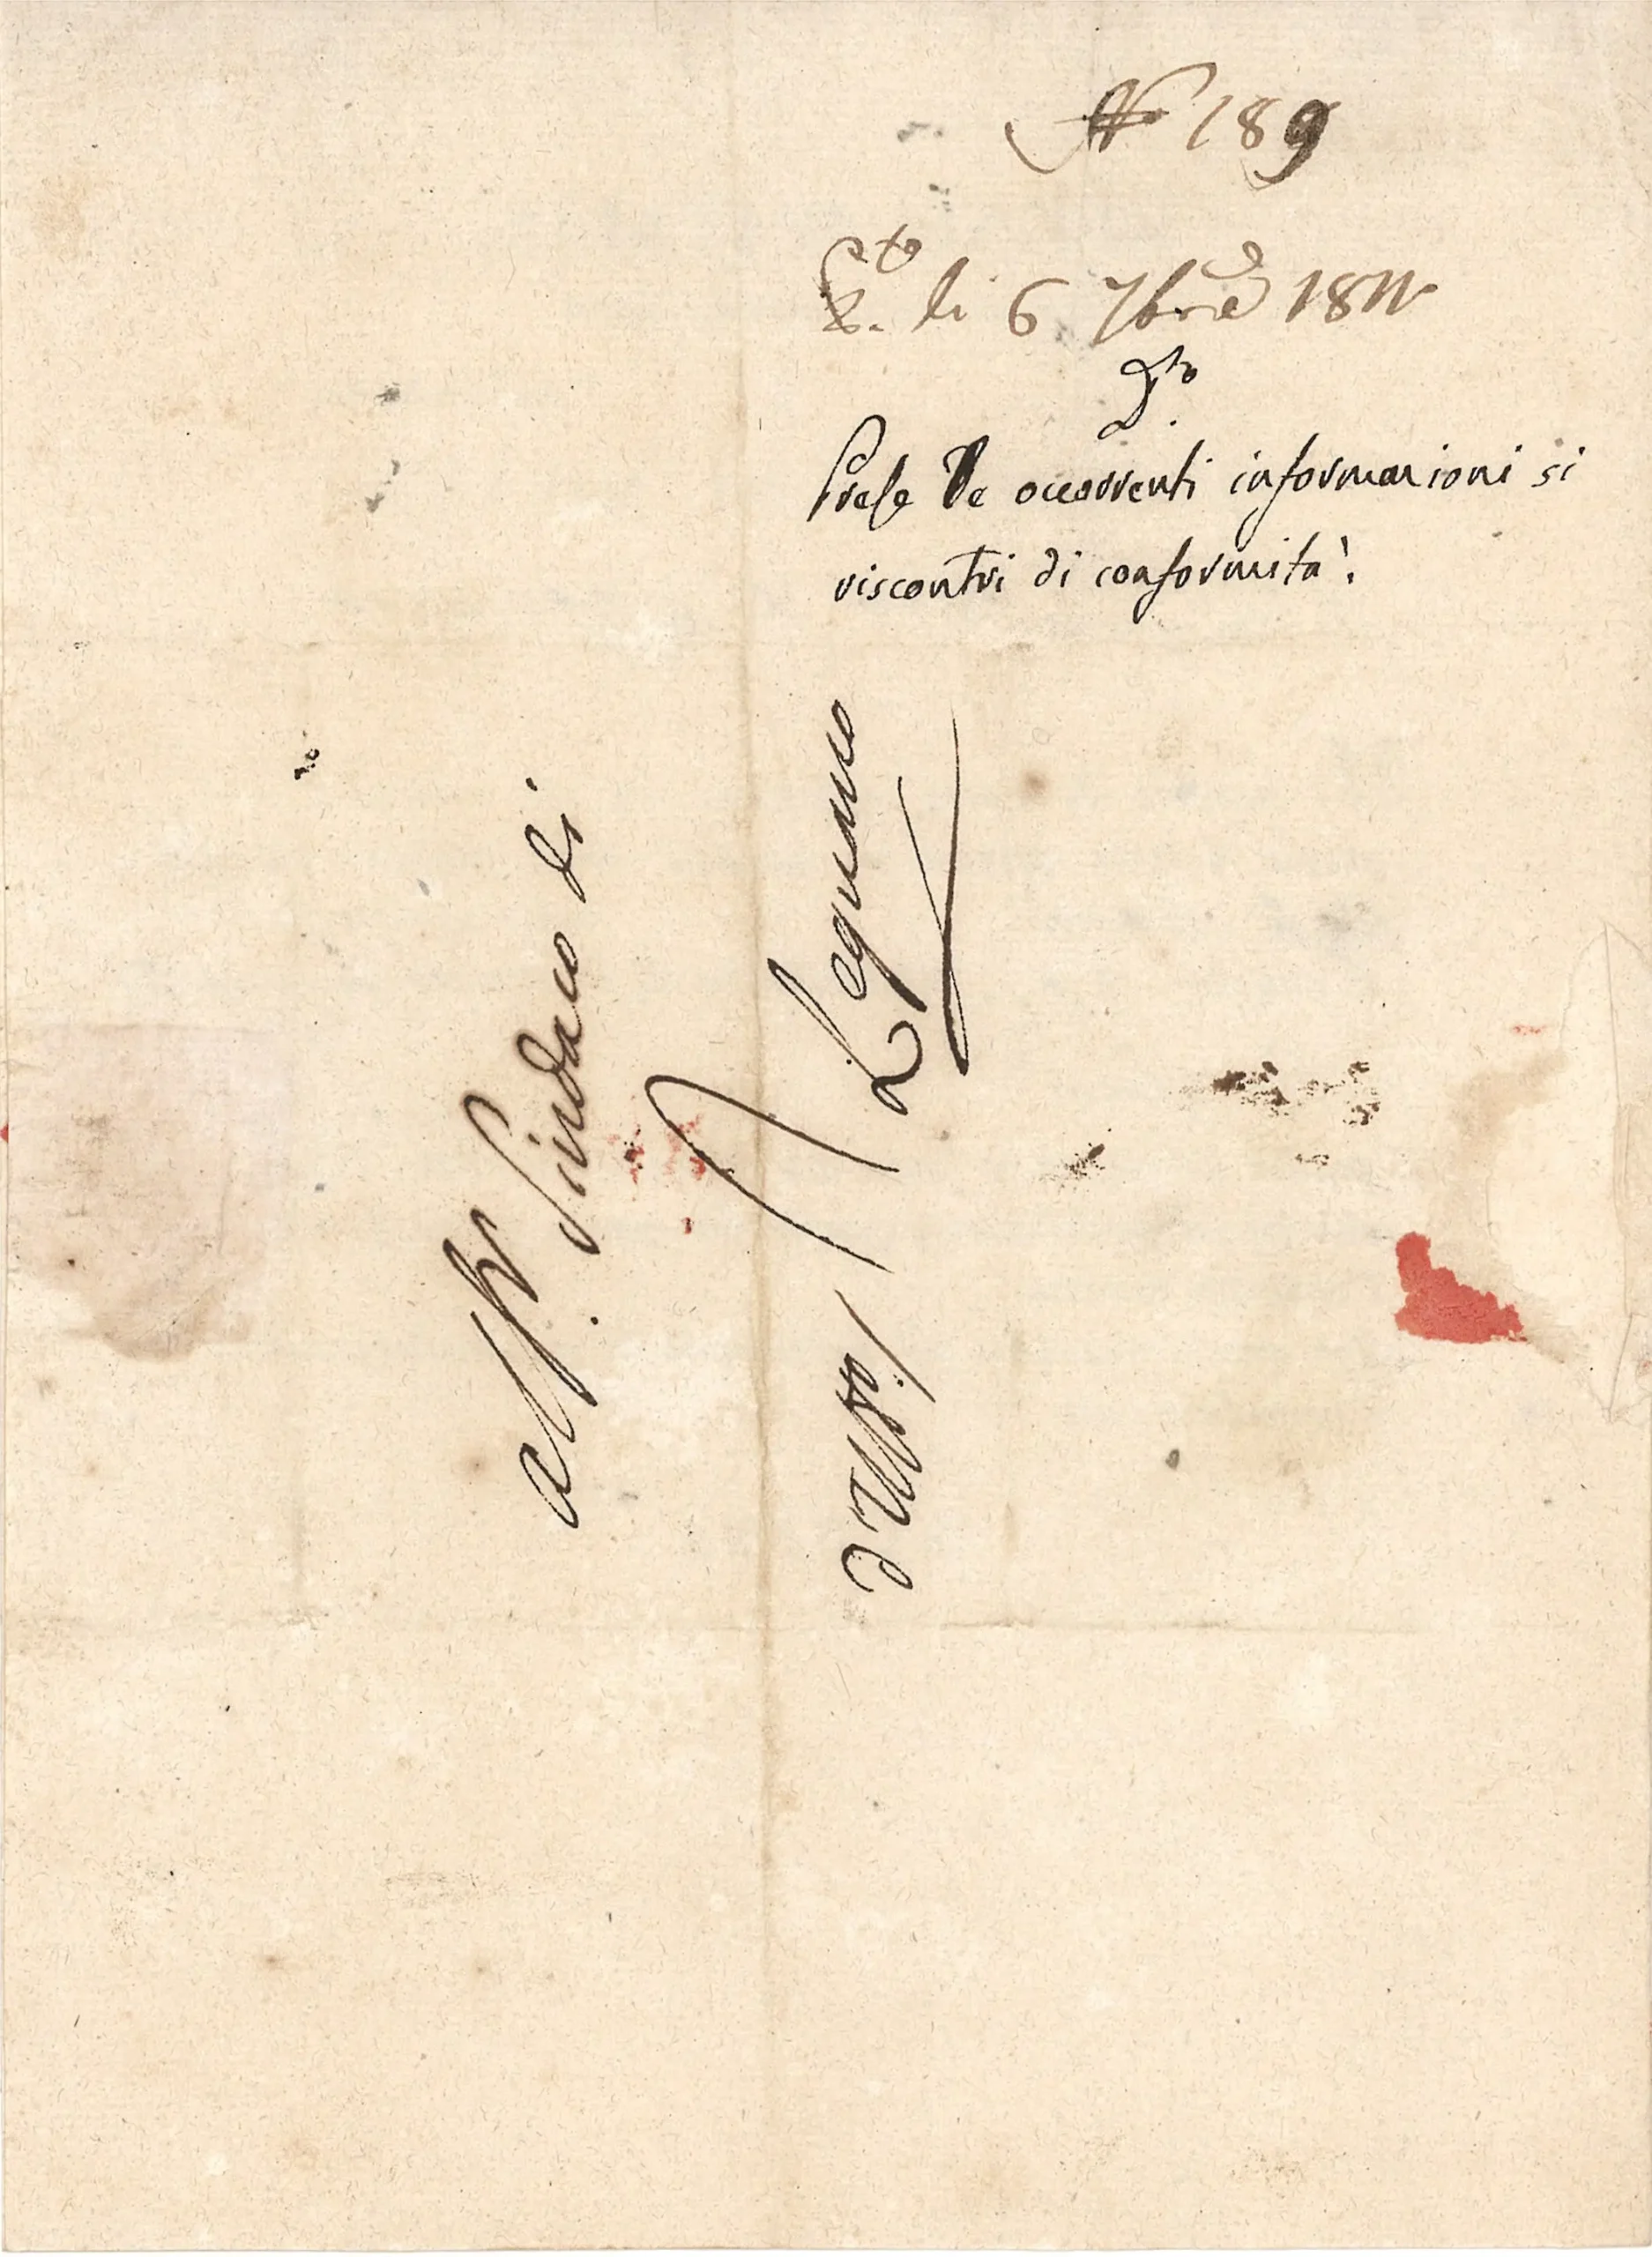 N 189
P.to li 6 7bre 1811
D.to
Prese le occorrenti informazioni si
riscontri di conformità.
al Sr. Sindaco di
Legnano